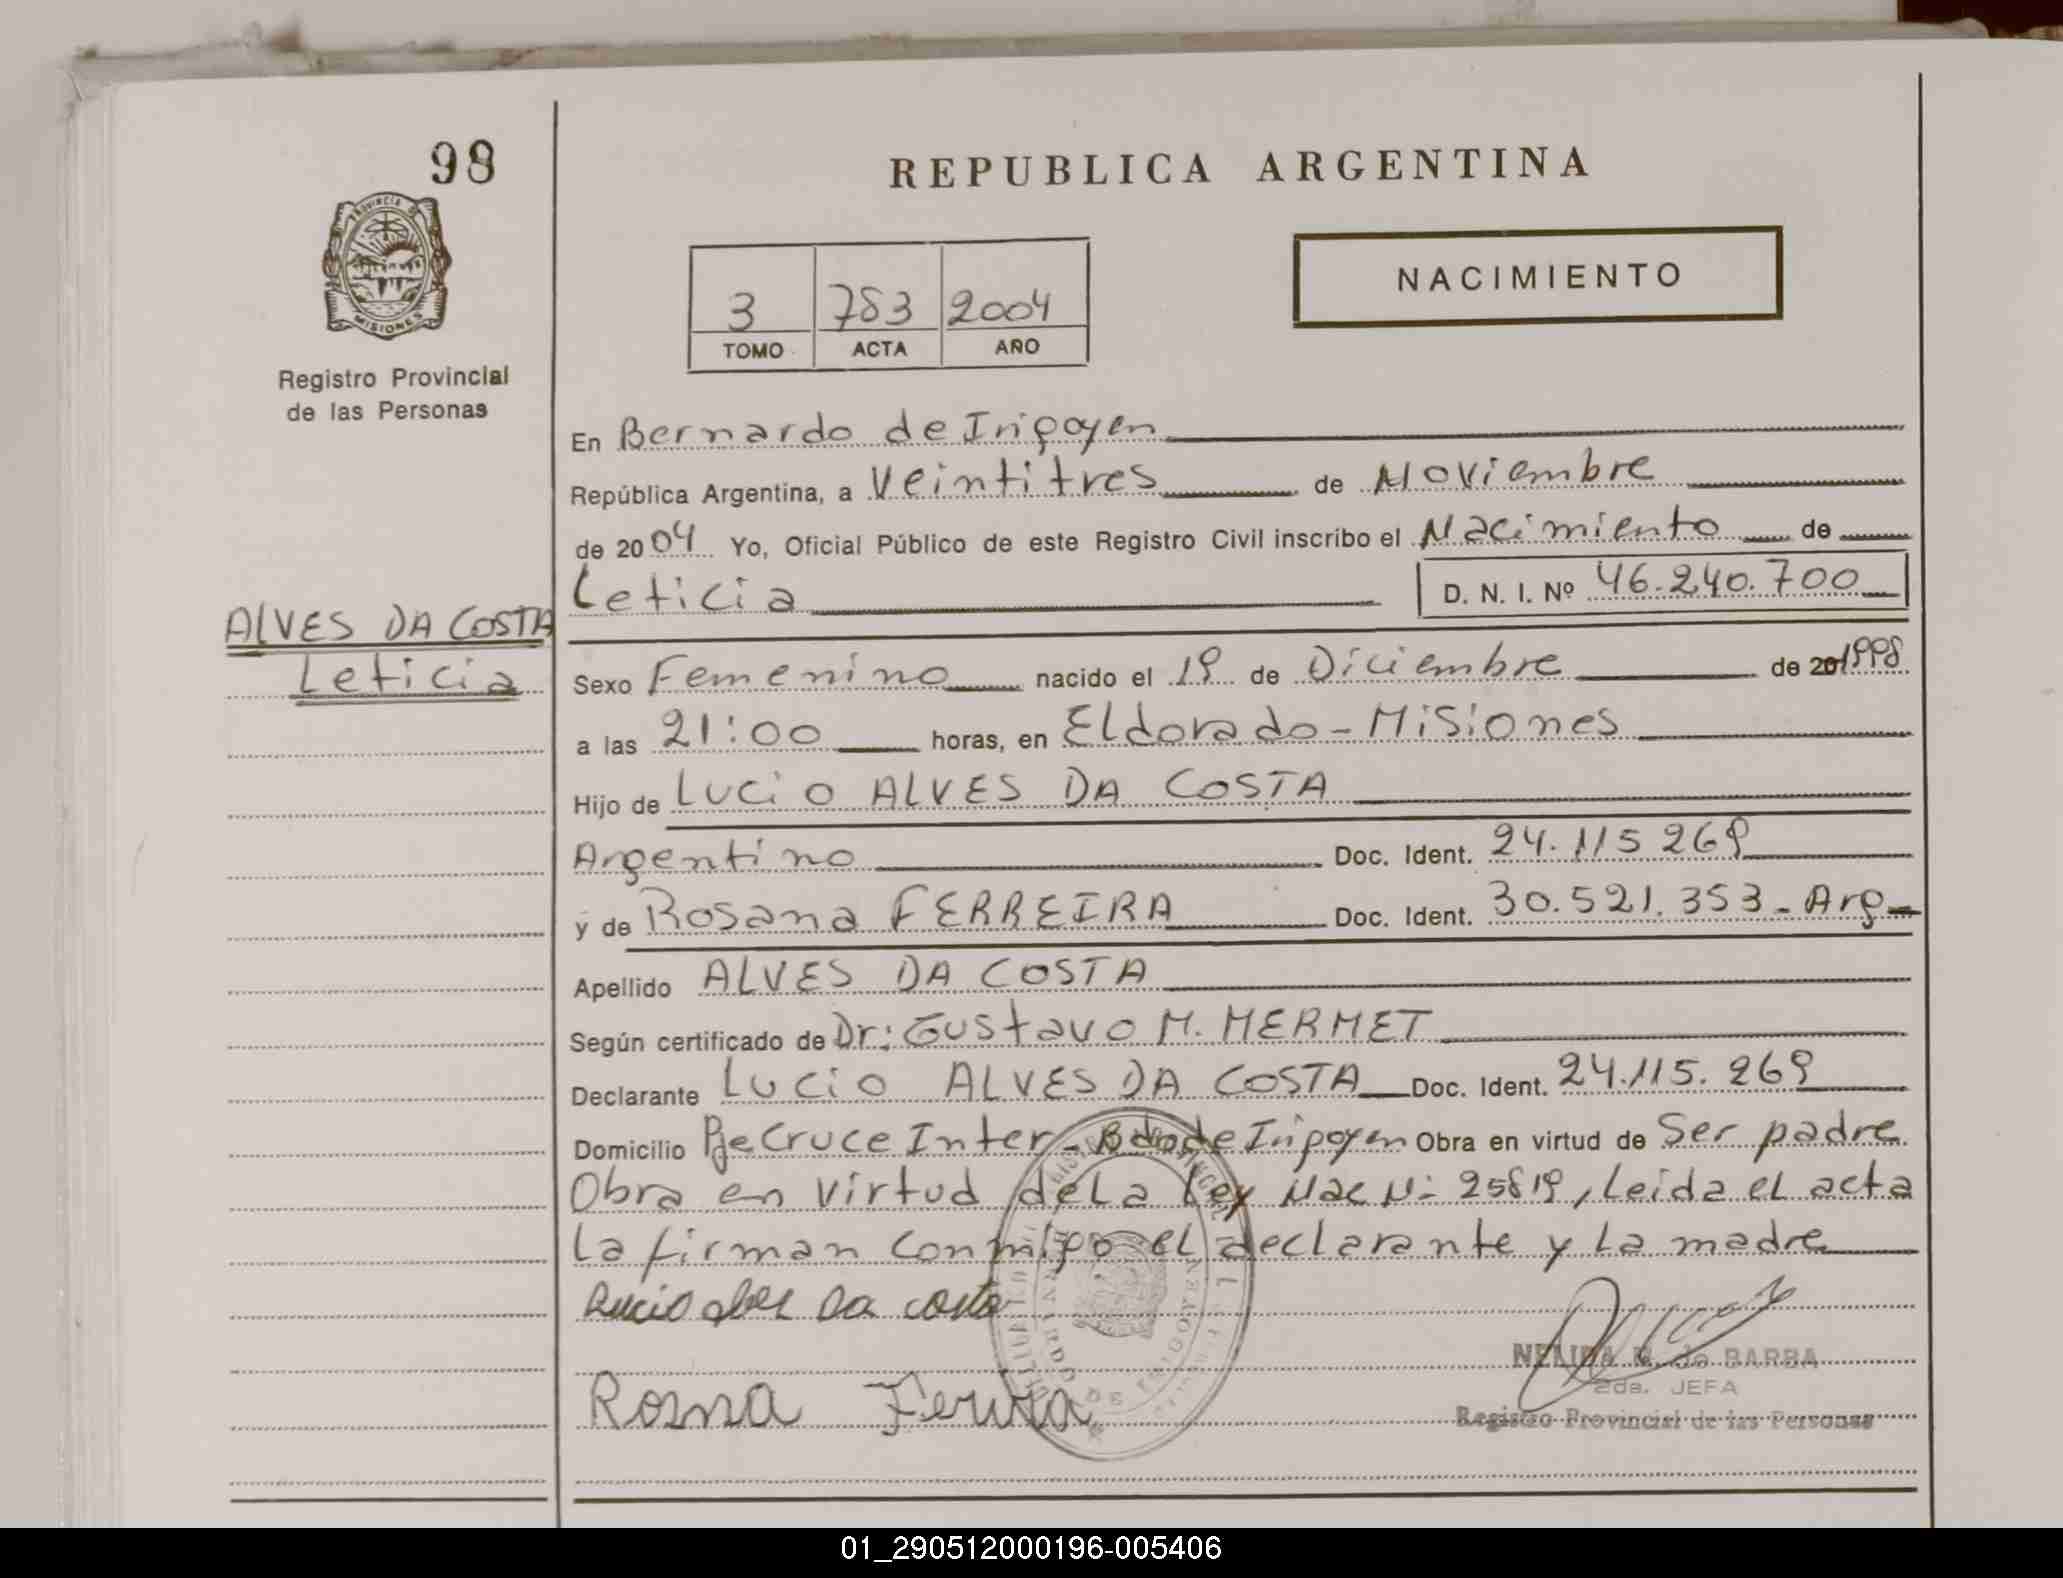 98
REPUBLICA ARGENTINA
PROVINCIA DE
MISIONES
Registro Provincial
de las Personas
3 783 2004
TOMO ACTA AÑO
NACIMIENTO
En Bernardo de Irigoyen
República Argentina, a Veintitres de Noviembre
de 2004 Yo, Oficial Público de este Registro Civil inscribo el Nacimiento de
Leticia D. N. I. Nº 46.240.700
ALVES DA COSTA
Leticia
Sexo Femenino nacido el 19 de Diciembre de 201998
a las 21:00 horas, en Eldorado - Misiones
Hijo de Lucio ALVES DA COSTA
Argentino Doc. Ident. 24.115 269
y de Rosana FERREIRA Doc. Ident. 30.521.353 - Arg
Apellido ALVES DA COSTA
Según certificado de Dr: Gustavo M. MERMET
Declarante Lucio ALVES DA COSTA Doc. Ident. 24.115.269
Domicilio Pje Cruce Inter - Bdo de Irigoyen Obra en virtud de Ser padre
Obra en virtud de La Ley Nac Nº 25819, Leida el acta
La firman conmigo el declarante y La madre
Lucio alves Da costa
NELIDA R. de BARBA
2da. JEFA
Rosana Ferreira
Registro Provincial de las Personas
01_290512000196-005406